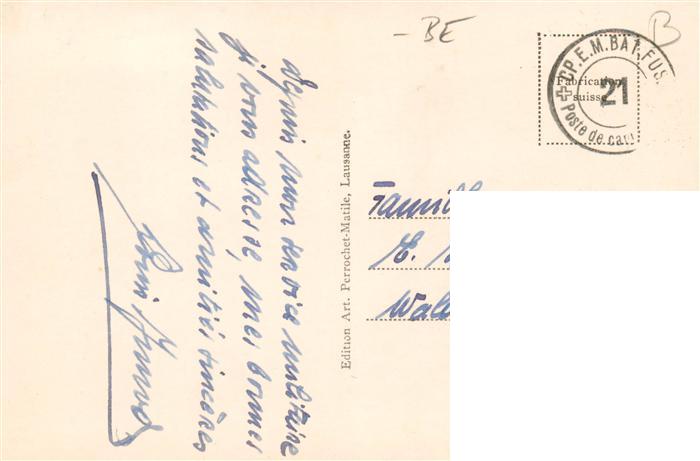 - BE
B
CP. E. M. BAT. FUS.
21
Poste de cam
Fabrication
suisse
Depuis mon service militaire
je vous adresse, mes bonnes
salutations et amitiés sincères
Edition Art. Perrochet-Matile, Lausanne.
Famill
E.
Wal